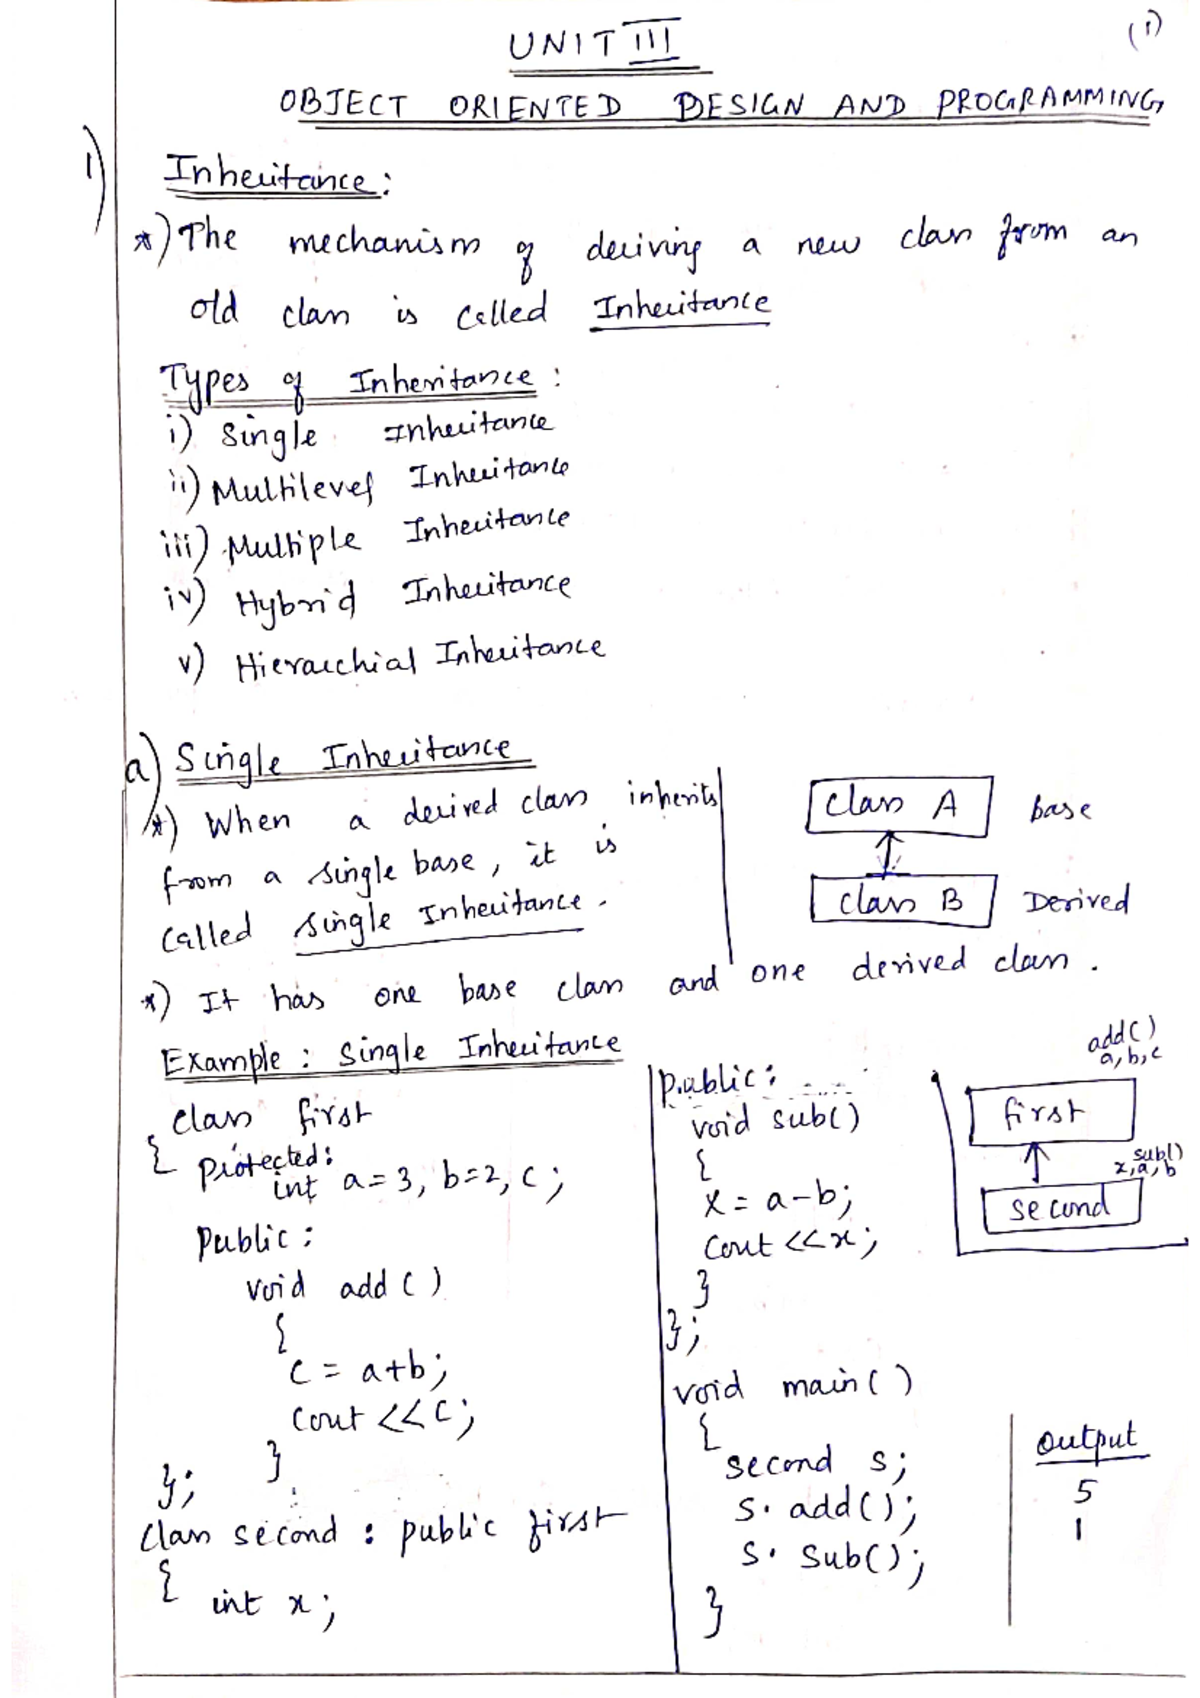 (i)
UNIT III
OBJECT ORIENTED DESIGN AND PROGRAMMING,
1) Inheritance:
*) The mechanism of deriving a new class from an
old class is called Inheritance
Types of Inheritance :
i) Single Inheritance
ii) Multilevel Inheritance
iii) Multiple Inheritance
iv) Hybrid Inheritance
v) Hierarchial Inheritance
a) Single Inheritance
*) When a derived class inherits
from a single base, it is
called single Inheritance.
class A base
class B Derived
*) It has one base class and one derived class.
Example : Single Inheritance
class first
{ protected:
int a=3, b=2, c;
public:
void add()
{
c = a+b;
cout <<c;
}
};
class second : public first
{ int x;
public:
void sub()
{
x = a-b;
cout <<x;
}
};
void main()
{
second s;
s. add();
s. sub();
}
add()
a, b, c
first
sub()
x, a, b
second
output
5
1